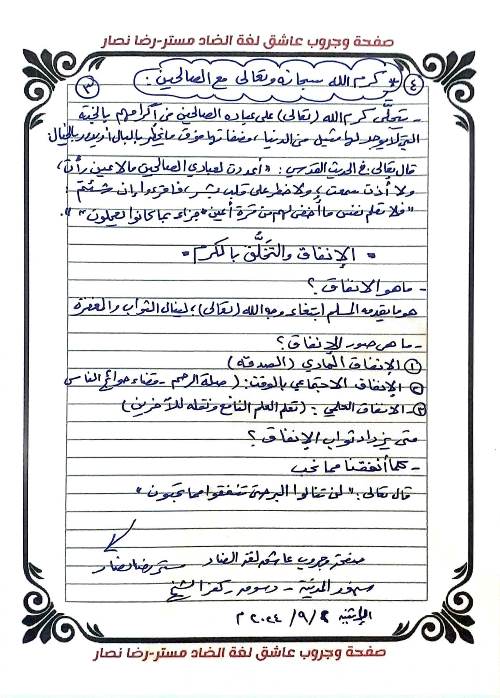 صفحة وجروب عاشق لغة الضاد مستر-رضا نصار
٤ * كرم الله سبحانه وتعالى مع الصالحين: ٣
- يتجلَّى كرم الله (تعالى) على عباده الصالحين من إكرامهم بالجنة
التى لا يوجد لها مثيل من الدنيا، وصفاتها فوق ما يخطر بالبال أو يدور بالخيال
قال تعالى فى الحديث القدسى: "أعددت لعبادي الصالحين ما لا عين رأت،
ولا أذن سمعت، ولا خطر على قلب بشر، فاقرءوا إن شئتم
"فلا تعلم نفس ما أخفى لهم من قرة أعين جزاء بما كانوا يعملون".
* الإنفاق والتخلُّق بالكرم *
- ما هو الإنفاق؟
هو ما يقدمه المسلم ابتغاء وجه الله (تعالى)، لينال الثواب والمغفرة
- ما هى صور الإنفاق؟
① الإنفاق المادي (الصدقة)
② الإنفاق الاجتماعي بالوقت: (صلة الرحم - قضاء حوائج الناس
③- الانفاق العلمي: (تعلم العلم النافع ونقله للآخرين)
متى يزداد ثواب الإنفاق؟
- كلما أنفقنا مما نحب
قال تعالى: "لن تنالوا البر حتى تنفقوا مما تحبون"
صفحة وجروب عاشق لغة الضاد مستر رضا نصار
الإثنين ٢٠٢٤/٩/٢ م
صفحة وجروب عاشق لغة الضاد مستر-رضا نصار